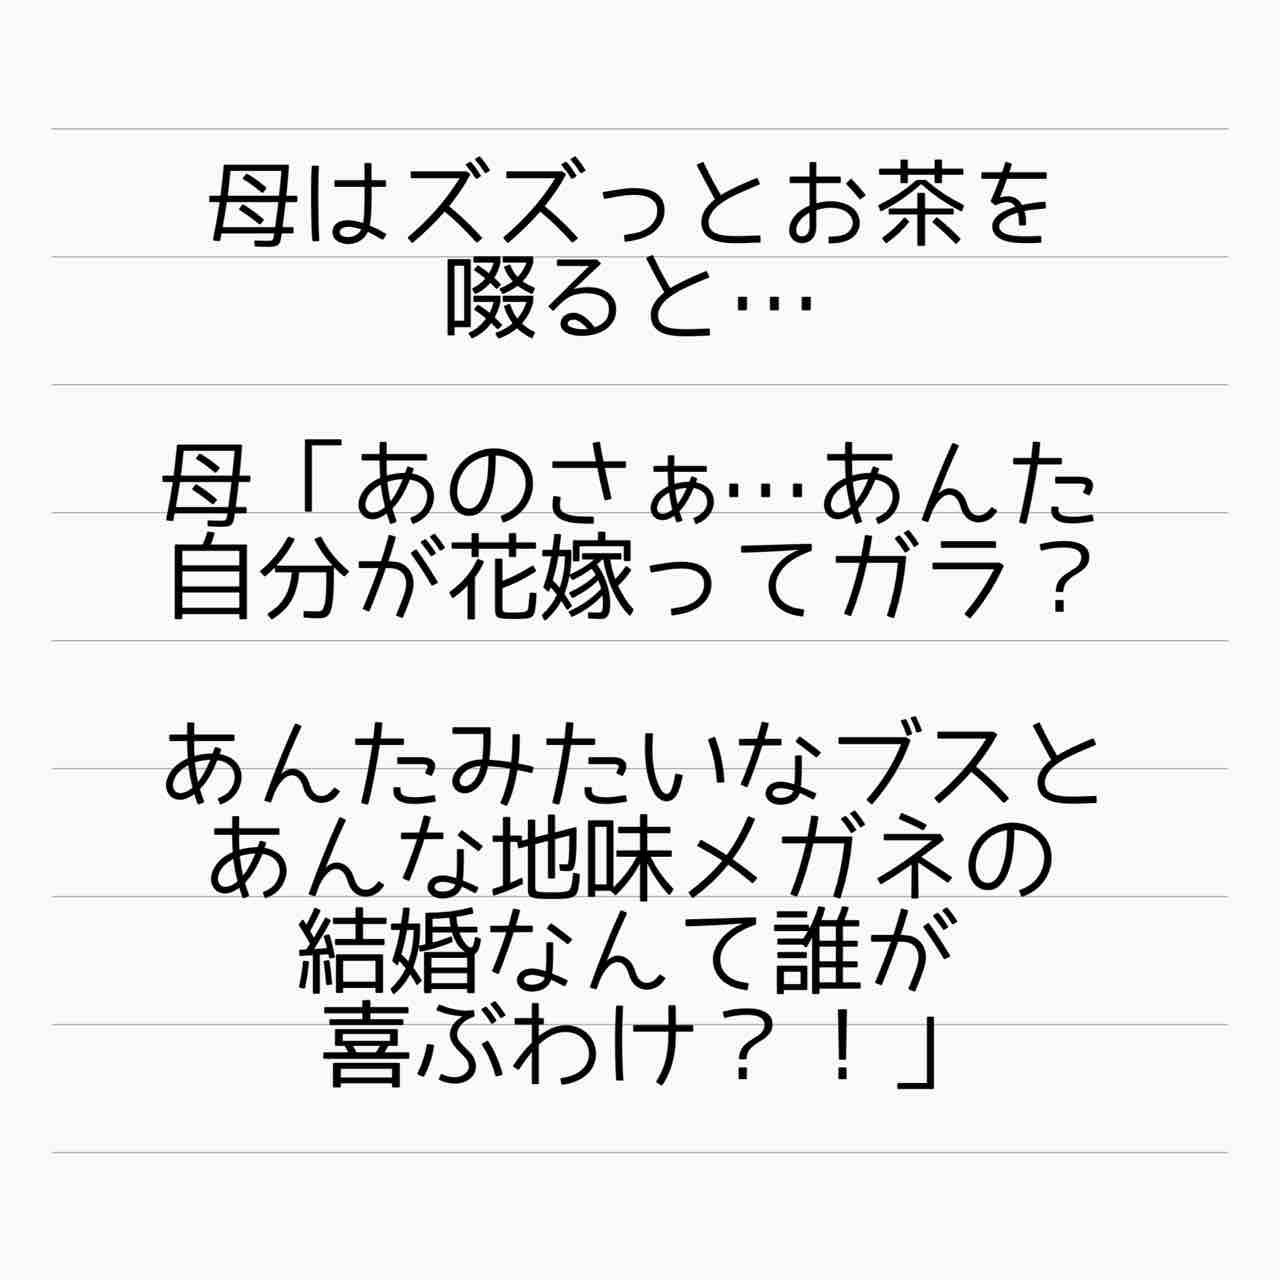 母はズズっとお茶を
啜ると…
母「あのさぁ…あんた
自分が花嫁ってガラ？
あんたみたいなブスと
あんな地味メガネの
結婚なんて誰が
喜ぶわけ？！」